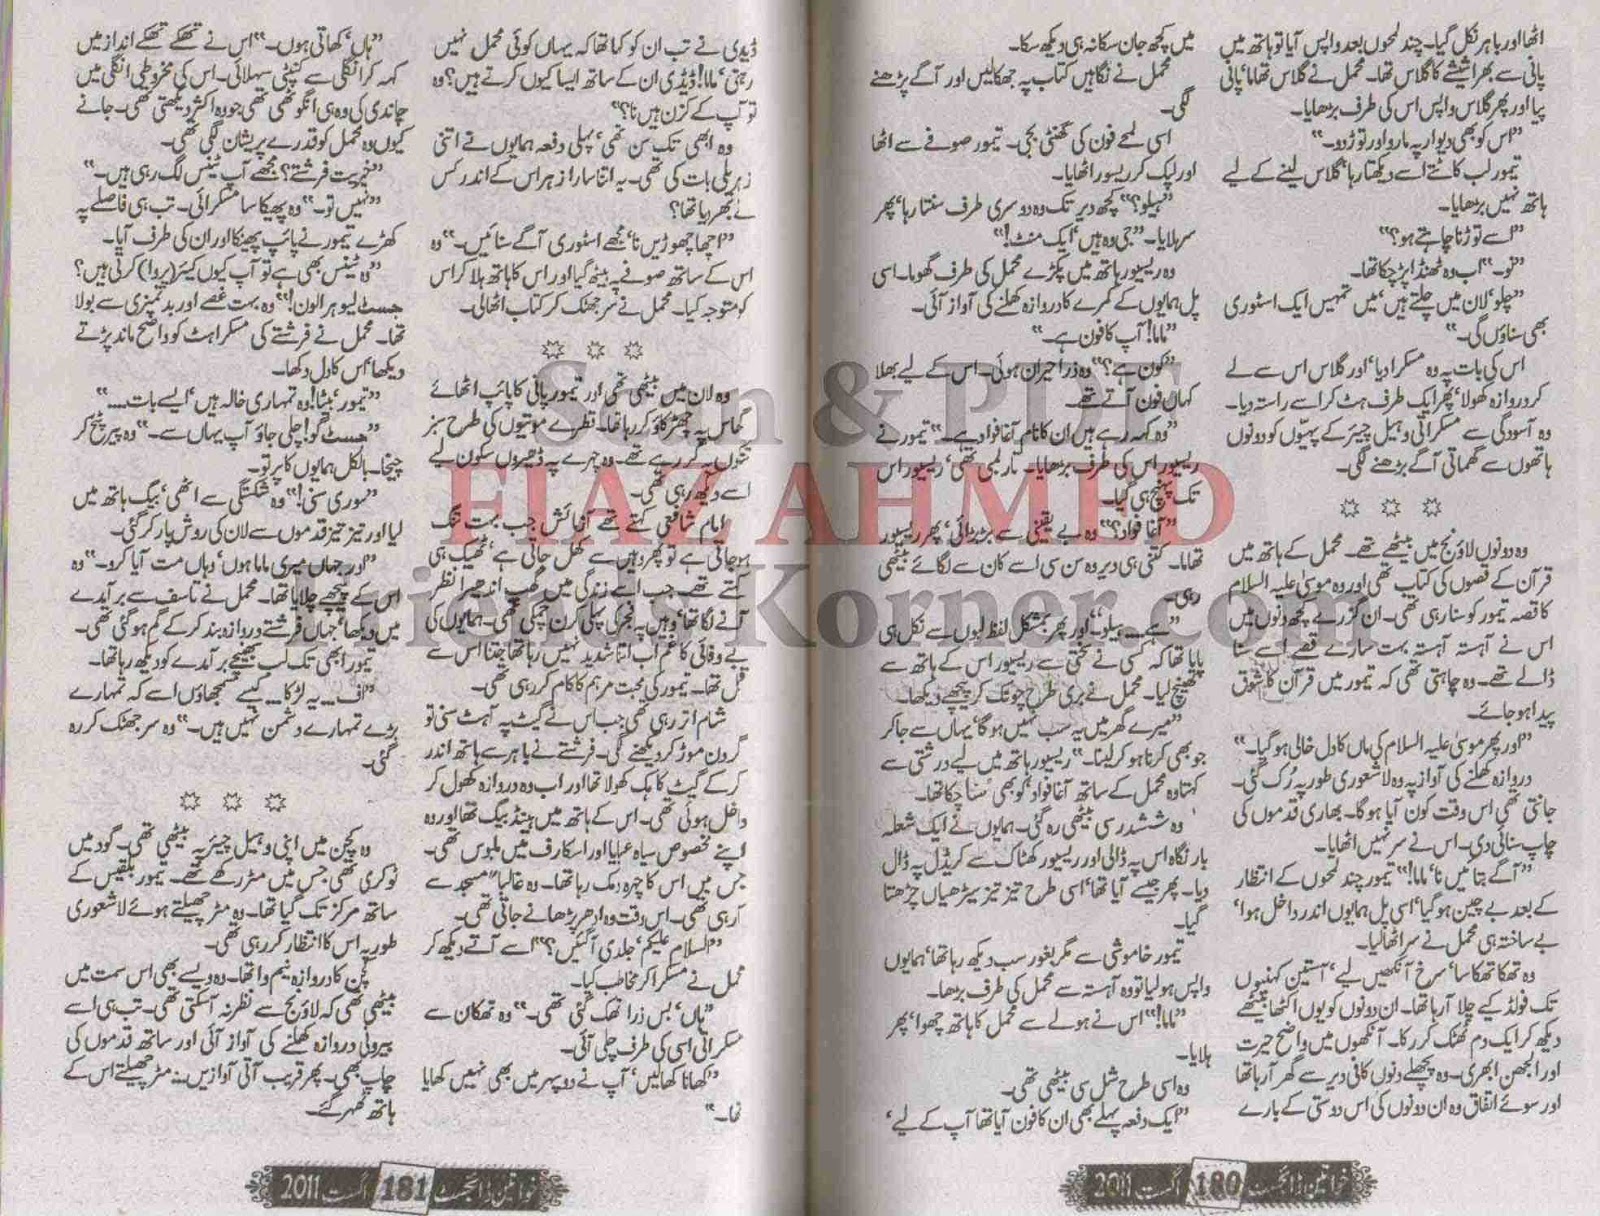 اٹھا اور باہر نکل گیا۔ چند لمحوں بعد واپس آیا تو ہاتھ میں
پانی سے بھرا شیشے کا گلاس تھا۔ محمل نے گلاس تھاما‘ پانی
پیا اور پھر گلاس واپس اس کی طرف بڑھایا۔
’’اس کو بھی دیوار پہ مارو اور توڑ دو۔‘‘
تیمور لب کاٹتے اسے دیکھتا رہا‘ گلاس لینے کے لیے
ہاتھ نہیں بڑھایا۔
’’اسے توڑنا چاہتے ہو؟‘‘
’’نو۔‘‘ اب وہ ٹھنڈا پڑ چکا تھا۔
’’چلو‘ لان میں چلتے ہیں‘ میں تمہیں ایک اسٹوری
بھی سناؤں گی۔‘‘
اس کی بات پہ وہ مسکرا دیا‘ اور گلاس اس سے لے
کر دروازہ کھولا‘ پھر ایک طرف ہٹ کر اسے راستہ دیا۔
وہ آسودگی سے مسکرائی وہیل چیئر کے پہیوں کو دونوں
ہاتھوں سے گھماتی آگے بڑھنے لگی۔
وہ دونوں لاؤنج میں بیٹھے تھے۔ محمل کے ہاتھ میں
قرآن کے قصوں کی کتاب تھی اور وہ موسیٰ علیہ السلام
کا قصہ تیمور کو سنا رہی تھی۔ ان گزرے کچھ دنوں میں
اس نے آہستہ آہستہ بہت سارے قصے اسے سنا
ڈالے تھے۔ وہ چاہتی تھی کہ تیمور میں قرآن کا شوق
پیدا ہو جائے۔
’’اور پھر موسیٰ علیہ السلام کی ماں کا دل خالی ہو گیا۔‘‘
دروازہ کھلنے کی آواز پہ وہ لاشعوری طور پہ رک گئی۔
جانتی تھی اس وقت کون آیا ہوگا۔ بھاری قدموں کی
چاپ سنائی دی۔ اس نے سر نہیں اٹھایا۔
’’آگے بتائیں نا‘ ماما!‘‘ تیمور چند لمحوں کے انتظار
کے بعد بے چین ہو گیا‘ اسی پل ہمایوں اندر داخل ہوا‘
بے ساختہ ہی محمل نے سر اٹھا لیا۔
وہ تھکا تھکا سا‘ سرخ آنکھیں لیے‘ آستین کہنیوں
تک فولڈ کیے چلا آ رہا تھا۔ ان دونوں کو یوں اکٹھا بیٹھے
دیکھ کر ایک دم ٹھٹک کر رکا۔ آنکھوں میں واضح حیرت
اور الجھن ابھری۔ وہ پچھلے دنوں کافی دیر سے گھر آ رہا تھا
اور سوئے اتفاق وہ ان دونوں کی اس دوستی کے بارے
میں کچھ جان سکا نہ ہی دیکھ سکا۔
محمل نے نگاہیں کتاب پہ جھکا لیں اور آگے پڑھنے
لگی۔
اسی لمحے فون کی گھنٹی بجی۔ تیمور صوفے سے اٹھا
اور لپک کر ریسور اٹھایا۔
’’ہیلو؟‘‘ کچھ دیر تک وہ دوسری طرف سنتا رہا‘ پھر
سر ہلایا۔ ’’جی وہ ہیں‘ ایک منٹ!‘‘
وہ ریسیور ہاتھ میں پکڑے محمل کی طرف گھوما۔ اسی
پل ہمایوں کے کمرے کا دروازہ کھلنے کی آواز آئی۔
’’ماما! آپ کا فون ہے۔‘‘
’’کون ہے؟‘‘ وہ ذرا حیران ہوئی۔ اس کے لیے بھلا
کہاں فون آتے تھے۔
’’وہ کہہ رہے ہیں ان کا نام آغا فواد ہے۔‘‘ تیمور نے
ریسیور اس کی طرف بڑھایا۔ تار لمبی تھی‘ ریسیور اس
تک پہنچ ہی گیا۔
’’آغا فواد؟‘‘ وہ بے یقینی سے بڑبڑائی‘ پھر ریسیور
تھاما۔ کتنی ہی دیر وہ سن سی اسے کان سے لگائے بیٹھی
رہی۔
’’ہے.... ہیلو۔‘‘ اور پھر بمشکل لفظ لبوں سے نکل ہی
پایا تھا کہ کسی نے سختی سے ریسیور اس کے ہاتھ سے
کھینچ لیا۔ محمل نے بری طرح چونک کر پیچھے دیکھا۔
’’میرے گھر میں یہ سب نہیں ہوگا‘ یہاں سے جا کر
جو بھی کرنا ہو کر لینا۔‘‘ ریسیور ہاتھ میں لیے درشتی سے
کہتا وہ محمل کے ساتھ آغا فواد کو بھی سنا چکا تھا۔
وہ ششدر سی بیٹھی رہ گئی۔ ہمایوں نے ایک شعلہ
بار نگاہ اس پہ ڈالی اور ریسیور کھٹاک سے کریڈل پہ ڈال
دیا۔ پھر جیسے آیا تھا‘ اسی طرح تیز تیز سیڑھیاں چڑھتا
گیا۔
تیمور خاموشی سے مگر بغور سب دیکھ رہا تھا‘ ہمایوں
واپس ہو لیا تو وہ آہستہ سے محمل کی طرف بڑھا۔
’’ماما!‘‘ اس نے ہولے سے محمل کا ہاتھ چھوا‘ پھر
ہلایا۔
وہ اسی طرح شل سی بیٹھی تھی۔
’’ایک دفعہ پہلے بھی ان کا فون آیا تھا آپ کے لیے‘
خواتین ڈائجسٹ 180 اگست 2011
ڈیڈی نے تب ان کو کہا تھا کہ یہاں کوئی محمل نہیں
رہتی‘ ماما! ڈیڈی ان کے ساتھ ایسا کیوں کرتے ہیں؟ وہ
تو آپ کے کزن ہیں نا؟‘‘
وہ ابھی تک سن تھی‘ پہلی دفعہ ہمایوں نے اتنی
زہریلی بات کی تھی۔ یہ اتنا سارا زہر اس کے اندر کس
نے بھر دیا تھا؟
’’اچھا چھوڑیں نا‘ مجھے اسٹوری آگے سنائیں۔‘‘ وہ
اس کے ساتھ صوفے پہ بیٹھ گیا اور اس کا ہاتھ ہلا کر اس
کو متوجہ کیا۔ محمل نے سر جھٹک کر کتاب اٹھا لی۔
وہ لان میں بیٹھی تھی اور تیمور پانی کا پائپ اٹھائے
گھاس پہ چھڑکاؤ کر رہا تھا۔ قطرے موتیوں کی طرح سبز
تنکوں پہ گر رہے تھے۔ وہ چہرے پہ ڈھیروں سکون لیے
اسے دیکھ رہی تھی۔
امام شافعی کہتے تھے آزمائش جب بہت تنگ
ہو جاتی ہے تو پھر وہیں سے کھل جاتی ہے‘ ٹھیک ہی
کہتے تھے۔ جب اسے زندگی میں گھپ اندھیرا نظر
آنے لگا تھا‘ وہیں پہ فجر کی پہلی کرن چمکی تھی۔ ہمایوں کی
بے وفائی کا غم اب اتنا شدید نہیں رہا تھا جتنا اس سے
قبل تھا۔ تیمور کی محبت مرہم کا کام کر رہی تھی۔
شام اتر رہی تھی جب اس نے گیٹ پہ آہٹ سنی تو
گردن موڑ کر دیکھنے لگی۔ فرشتے نے باہر سے ہاتھ اندر
کر کے گیٹ کا ہک کھولا تھا اور اب وہ دروازہ کھول کر
داخل ہوئی تھی۔ اس کے ہاتھ میں ہینڈ بیگ تھا اور وہ
اپنے مخصوص سیاہ عبایا اور اسکارف میں ملبوس تھی۔
جس میں اس کا چہرہ دمک رہا تھا۔ وہ غالباً مسجد سے
آ رہی تھی۔ اس وقت وہ ادھر پڑھانے جاتی تھی۔
’’السلام علیکم‘ جلدی آ گئیں؟‘‘ اسے آتے دیکھ کر
محمل نے مسکرا کر مخاطب کیا۔
’’ہاں‘ بس ذرا تھک گئی تھی۔‘‘ وہ تھکان سے
مسکراتی اسی کی طرف چلی آئی۔
’’کھانا کھا لیں‘ آپ نے دوپہر میں بھی نہیں کھایا
تھا۔‘‘
’’ہاں‘ کھاتی ہوں۔‘‘ اس نے تھکے تھکے انداز میں
کہہ کر انگلی سے کنپٹی سہلائی۔ اس کی مخروطی انگلی میں
چاندی کی وہ ہی انگوٹھی تھی جو وہ اکثر دیکھتی تھی۔ جانے
کیوں وہ محمل کو قدرے پریشان لگی تھی۔
’’خیریت فرشتے؟ مجھے آپ ٹینس لگ رہی ہیں۔‘‘
’’نہیں تو۔‘‘ وہ پھیکا سا مسکرائی۔ تب ہی فاصلے پہ
کھڑے تیمور نے پائپ پھینکا اور ان کی طرف آیا۔
’’وہ ٹینس بھی ہے تو آپ کیوں کیئر (پروا) کرتی ہیں؟
جسٹ لیو ہر الون!‘‘ وہ بہت غصے اور بدتمیزی سے بولا
تھا۔ محمل نے فرشتے کی مسکراہٹ کو واضح ماند پڑتے
دیکھا‘ اس کا دل دکھا۔
’’تیمور‘ بیٹا! وہ تمہاری خالہ ہیں‘ ایسے بات....‘‘
’’جسٹ گو! چلی جاؤ آپ یہاں سے۔‘‘ وہ پیر پٹخ کر
چیخا۔ بالکل ہمایوں کا پرتو۔
’’سوری سنی!‘‘ وہ شکستگی سے اٹھی‘ بیگ ہاتھ میں
لیا اور تیز تیز قدموں سے لان کی روش پار کر گئی۔
’’اور جہاں میری ماما ہوں‘ وہاں مت آیا کرو۔‘‘ وہ
اس کے پیچھے چلایا تھا۔ محمل نے تاسف سے برآمدے
میں دیکھا‘ جہاں فرشتے دروازہ بند کر کے گم ہو گئی تھی۔
تیمور ابھی تک لب بھینچے برآمدے کو دیکھ رہا تھا۔
’’اف.... یہ لڑکا.... کیسے سمجھاؤں اسے کہ تمہارے
بڑے تمہارے دشمن نہیں ہیں۔‘‘ وہ سر جھٹک کر رہ
گئی۔
وہ کچن میں اپنی وہیل چیئر پہ بیٹھی تھی۔ گود میں
ٹوکری تھی جس میں مٹر رکھے تھے۔ تیمور بلقیس کے
ساتھ مرکز تک گیا تھا۔ وہ مٹر چھیلتے ہوئے لاشعوری
طور پہ اس کا انتظار کر رہی تھی۔
کچن کا دروازہ نیم وا تھا۔ وہ ویسے بھی اس سمت میں
بیٹھی تھی کہ لاؤنج سے نظر نہ آ سکتی تھی۔ تب ہی اسے
بیرونی دروازہ کھلنے کی آواز آئی اور ساتھ قدموں کی
چاپ بھی۔ پھر قریب آتی آوازیں.... مٹر چھیلتے اس کے
ہاتھ ٹھہر گئے۔
خواتین ڈائجسٹ 181 اگست 2011
FIAZ AHMED